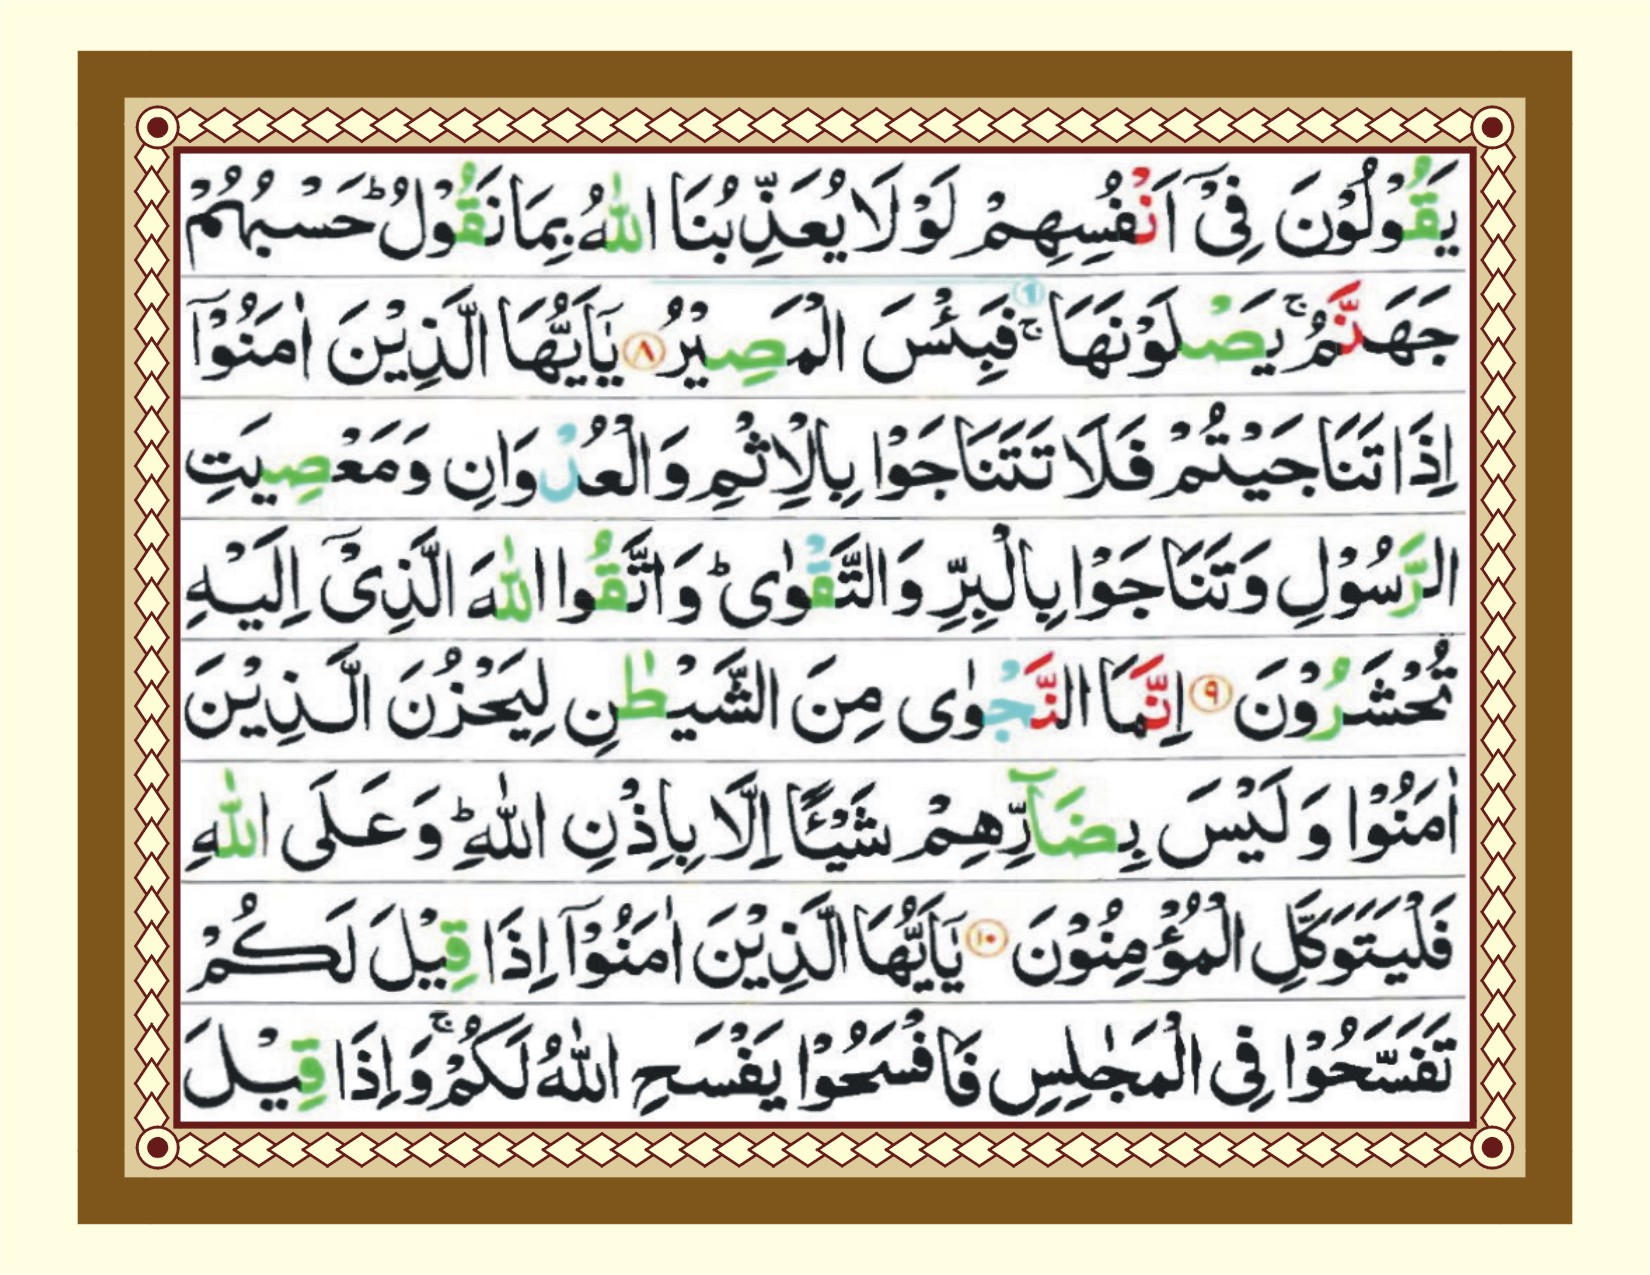 يَقُوْلُوْنَ فِىْٓ اَنْفُسِهِمْ لَوْ لَا يُعَذِّبُنَا اللّٰهُ بِمَا نَقُوْلُ ؕ حَسْبُهُمْ
جَهَنَّمُ ۚ يَصْلَوْنَهَا ۚ فَبِئْسَ الْمَصِيْرُ ۸ يٰۤاَيُّهَا الَّذِيْنَ اٰمَنُوْۤا
اِذَا تَنَاجَيْتُمْ فَلَا تَتَنَاجَوْا بِالْاِثْمِ وَالْعُدْوَانِ وَمَعْصِيَتِ
الرَّسُوْلِ وَتَنَاجَوْا بِالْبِرِّ وَالتَّقْوٰى ؕ وَاتَّقُوا اللّٰهَ الَّذِىْۤ اِلَيْهِ
تُحْشَرُوْنَ ۹ اِنَّمَا النَّجْوٰى مِنَ الشَّيْطٰنِ لِيَحْزُنَ الَّذِيْنَ
اٰمَنُوْا وَلَيْسَ بِضَآرِّهِمْ شَيْـًٔا اِلَّا بِاِذْنِ اللّٰهِ ؕ وَعَلَى اللّٰهِ
فَلْيَتَوَكَّلِ الْمُؤْمِنُوْنَ ۱۰ يٰۤاَيُّهَا الَّذِيْنَ اٰمَنُوْۤا اِذَا قِيْلَ لَكُمْ
تَفَسَّحُوْا فِى الْمَجٰلِسِ فَافْسَحُوْا يَفْسَحِ اللّٰهُ لَكُمْ ۚ وَاِذَا قِيْلَ